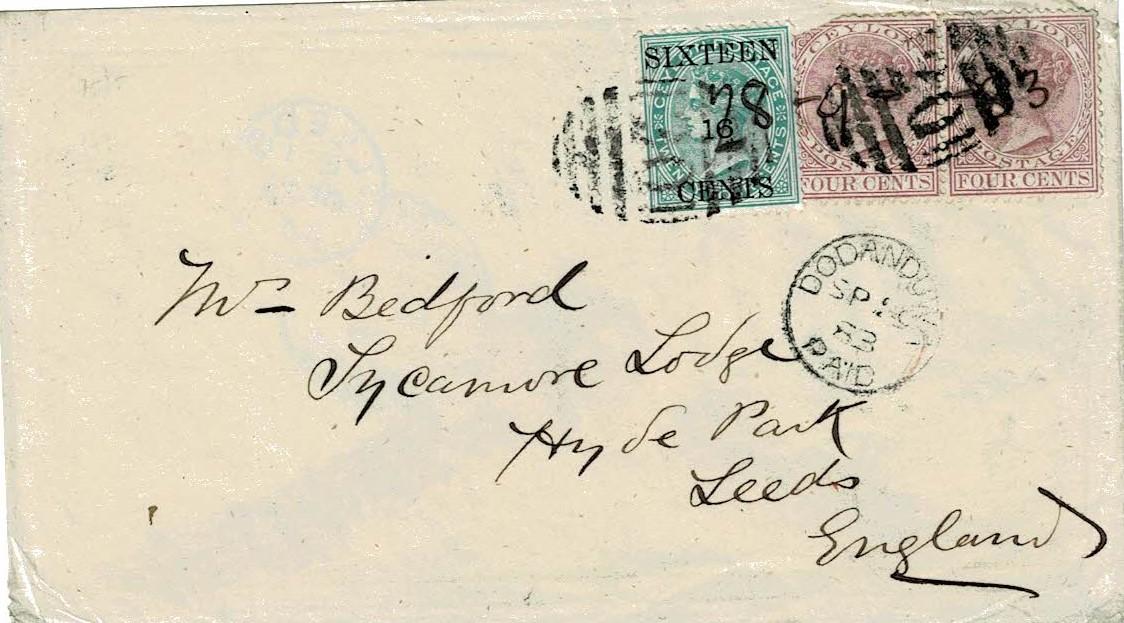 SIXTEEN
16
CENTS
CEYLON
POSTAGE
FOUR CENTS
CEYLON
POSTAGE
FOUR CENTS
28-9-83
DODANDUWA
SP 28
83
PAID
Mrs Bedford
Sycamore Lodge
Hyde Park
Leeds
England